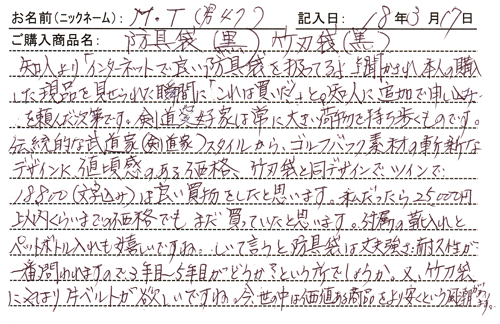 お名前(ニックネーム): M・T(男47) 記入日: 18年3月17日
ご購入商品名: 防具袋(黒) 竹刀袋(黒)
知人より「インターネットで良い防具袋を扱ってる」と聞かされ、本人の購入
した現品を見せられた瞬間に「これは買いだ」との知人に追加で申し込み
を頼んだ次第です。剣道愛好家は常に大きい荷物を持ち歩くものです。
伝統的な武道家(剣道家)スタイルから、ゴルフバック素材の斬新な
デザインに値頃感のある価格、竹刀袋と同デザインで、ツインで
18800(文字込み)は良い買物をしたと思います。私だったら25000円
以内くらいまでの価格でも、まだ買っていたと思います。付属の靴入れと
ペットボトル入れも嬉しいですね。しいて言うと防具袋は丈夫強さ・耐久性が
一番問われますので3年目〜5年目がどうか?という所でしょうか。又、竹刀袋
には片ベルトが欲しいですね。今、世の中は価値ある商品をより安くという